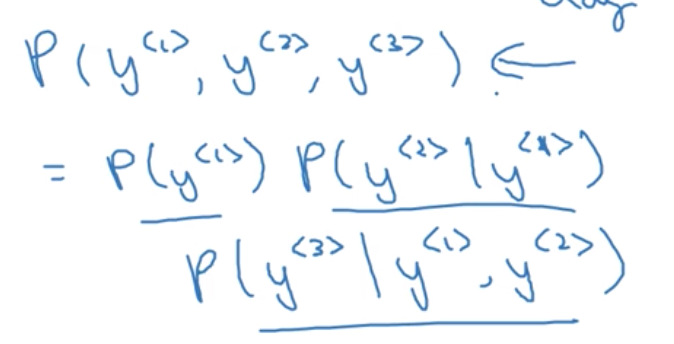 P(y<1>, y<2>, y<3>) ←
= P(y<1>) P(y<2> | y<1>)
P(y<3> | y<1>, y<2>)